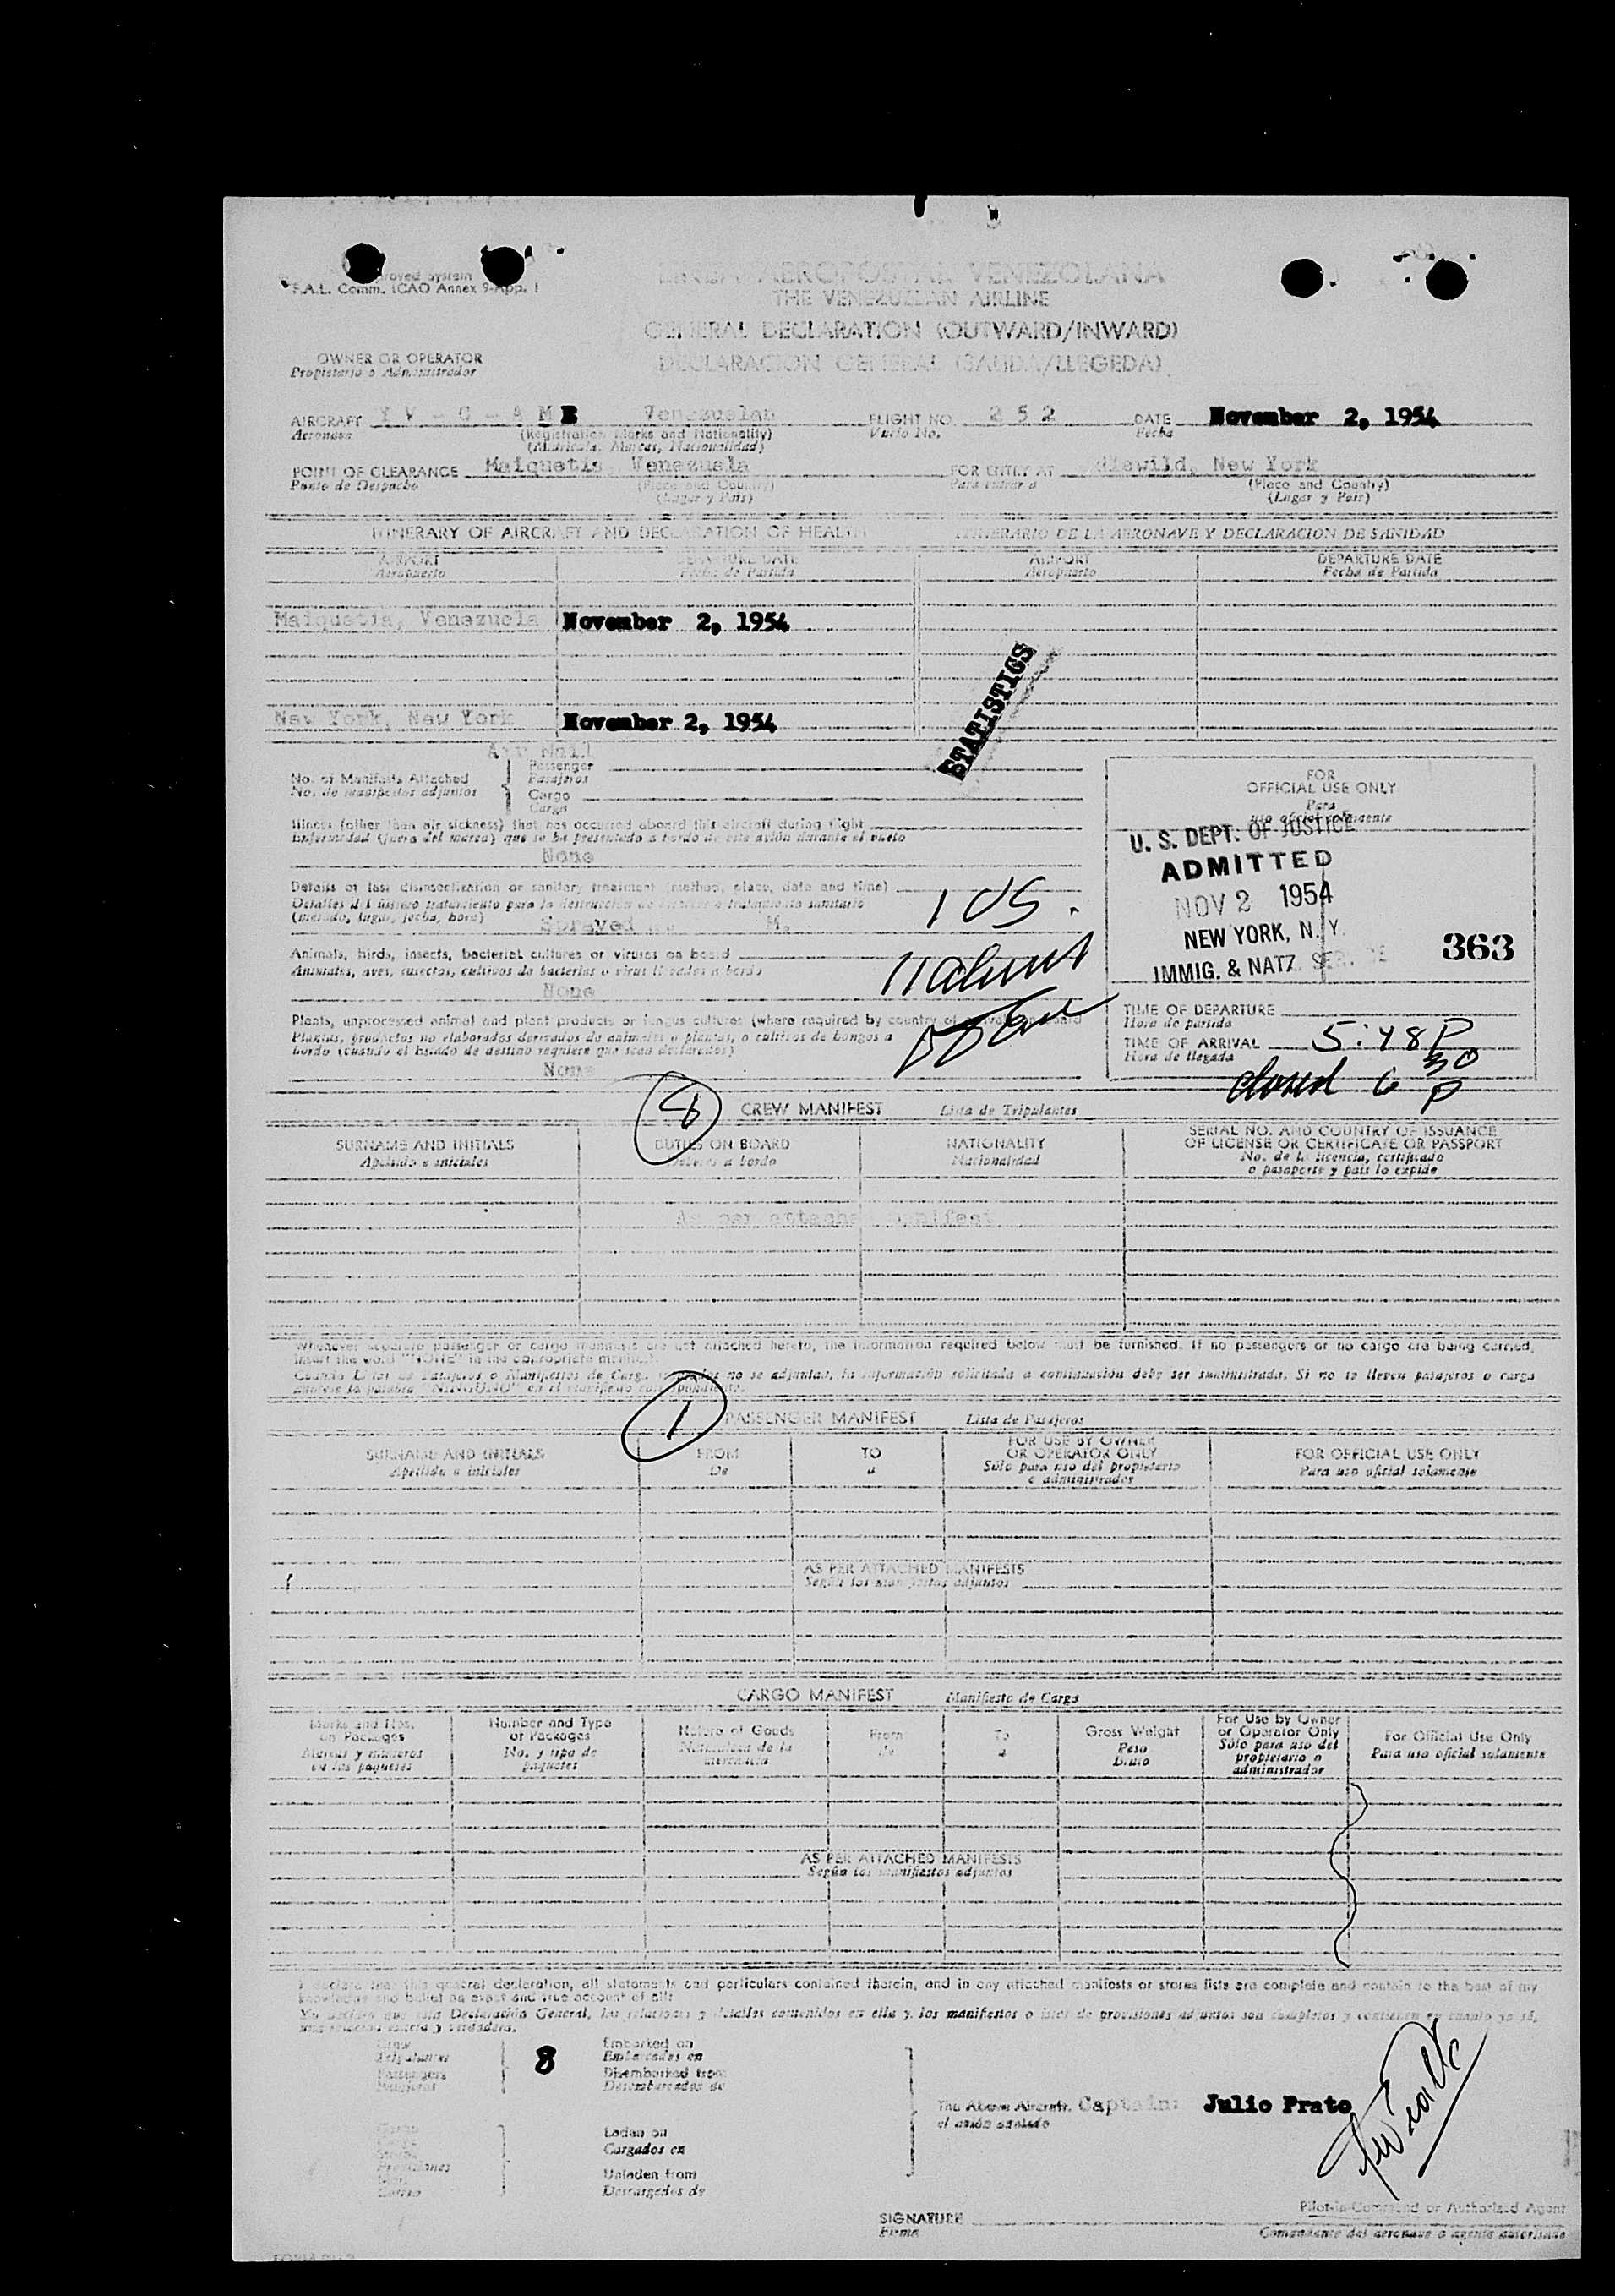 roved System
F.A.L. Comm. ICAO Annex 9-App. 1
LINEA AEROPOSTAL VENEZOLANA
THE VENEZUELAN AIRLINE
GENERAL DECLARATION (OUTWARD/INWARD)
DECLARACION GENERAL (SALIDA/LLEGEDA)
OWNER OR OPERATOR
Propietario o Administrador
AIRCRAFT Y V - C - A M E Venezuelan FLIGHT NO. 2 5 2 DATE November 2, 1954
Aeronave (Registration Marks and Nationality) Vuelo No. Fecha
(Matricula, Marcas, Nacionalidad)
POINT OF CLEARANCE Maiquetia, Venezuela FOR ENTRY AT Idlewild, New York
Punto de Despacho (Place and Country) Para entrar a (Place and Country)
(Lugar y Pais) (Lugar y Pais)
ITINERARY OF AIRCRAFT AND DECLARATION OF HEALTH ITINERARIO DE LA AERONAVE Y DECLARACION DE SANIDAD
AIRPORT DEPARTURE DATE AIRPORT DEPARTURE DATE
Aeropuerto Fecha de Partida Aeropuerto Fecha de Partida
Maiquetia, Venezuela November 2, 1954
STATISTICS
New York, New York November 2, 1954
Air Mail
No. of Manifests Attached
No. de manifiestos adjuntos
Passenger
Pasajeros
Cargo
Carga
Illness (other than air sickness) that has occurred aboard this aircraft during flight
Enfermedad (fuera del mareo) que se ha presentado a bordo de este avión durante el vuelo
None
Details of last disinsectization or sanitary treatment (method, place, date and time)
Detalles del último tratamiento para la destrucción de insectos o tratamiento sanitario
(metodo, lugar, fecha, hora)
Sprayed M.
Animals, birds, insects, bacterial cultures or viruses on board
Animales, aves, insectos, cultivos de bacterias o virus llevados a bordo
None
Plants, unprocessed animal and plant products or fungus cultures (where required by country of arrival) on board
Plantas, productos no elaborados derivados de animales o plantas, o cultivos de hongos a
bordo (cuando el Estado de destino requiere que sean declarados)
None
FOR
OFFICIAL USE ONLY
Para
uso oficial solamente
U. S. DEPT. OF JUSTICE
ADMITTED
NOV 2 1954
NEW YORK, N. Y.
IMMIG. & NATZ. SERVICE
363
TIME OF DEPARTURE
Hora de partida
TIME OF ARRIVAL 5:48P
Hora de llegada
closed 6 30 P
8 CREW MANIFEST Lista de Tripulantes
SURNAME AND INITIALS DUTIES ON BOARD NATIONALITY SERIAL NO. AND COUNTRY OF ISSUANCE
OF LICENSE OR CERTIFICATE OR PASSPORT
Apellido e iniciales Deberes a bordo Nacionalidad No. de la licencia, certificado
o pasaporte y pais lo expide
As per attached manifest
Whenever separate passenger or cargo manifests are not attached hereto, the information required below must be furnished. If no passengers or no cargo are being carried,
insert the word "NONE" in the appropriate manifest.
no se adjuntan, la información solicitada a continuación debe ser suministrada. Si no se lleven pasajeros o carga
anótese la palabra "NINGUNO" en el manifiesto correspondiente.
1 PASSENGER MANIFEST Lista de Pasajeros
SURNAME AND INITIALS FROM TO FOR USE BY OWNER
OR OPERATOR ONLY FOR OFFICIAL USE ONLY
Apellido e iniciales De a Sólo para uso del propietario
o administrador Para uso oficial solamente
AS PER ATTACHED MANIFESTS
Según los manifiestos adjuntos
CARGO MANIFEST Manifiesto de Carga
Marks and Nos.
on Packages
Marcas y números
en los paquetes
Number and Type
of Packages
No. y tipo de
paquetes
Nature of Goods
Naturaleza de la
mercancia
From
de
To
a
Gross Weight
Peso
Bruto
For Use by Owner
or Operator Only
Sólo para uso del
propietario o
administrador
For Official Use Only
Para uso oficial solamente
AS PER ATTACHED MANIFESTS
Según los manifiestos adjuntos
I declare that this general declaration, all statements and particulars contained therein, and in any attached manifests or stores lists are complete and contain to the best of my
knowledge and belief an exact and true account of all:
Declaración General, contenidos en ella y, los manifiestos o listas de provisiones adjuntos son completos y contienen en cuanto yo sé,
Crew
Tripulantes
Passengers
Pasajeros
8
Embarked on
Embarcados en
Disembarked from
Desembarcados de
The Above Aircraft. Captain: Julio Prato
el avión anotado
Laden on
Cargados en
Unladen from
Descargados de
SIGNATURE
Firma
Pilot-in-Command or Authorized Agent
Comandante del aeronave o agente autorizado